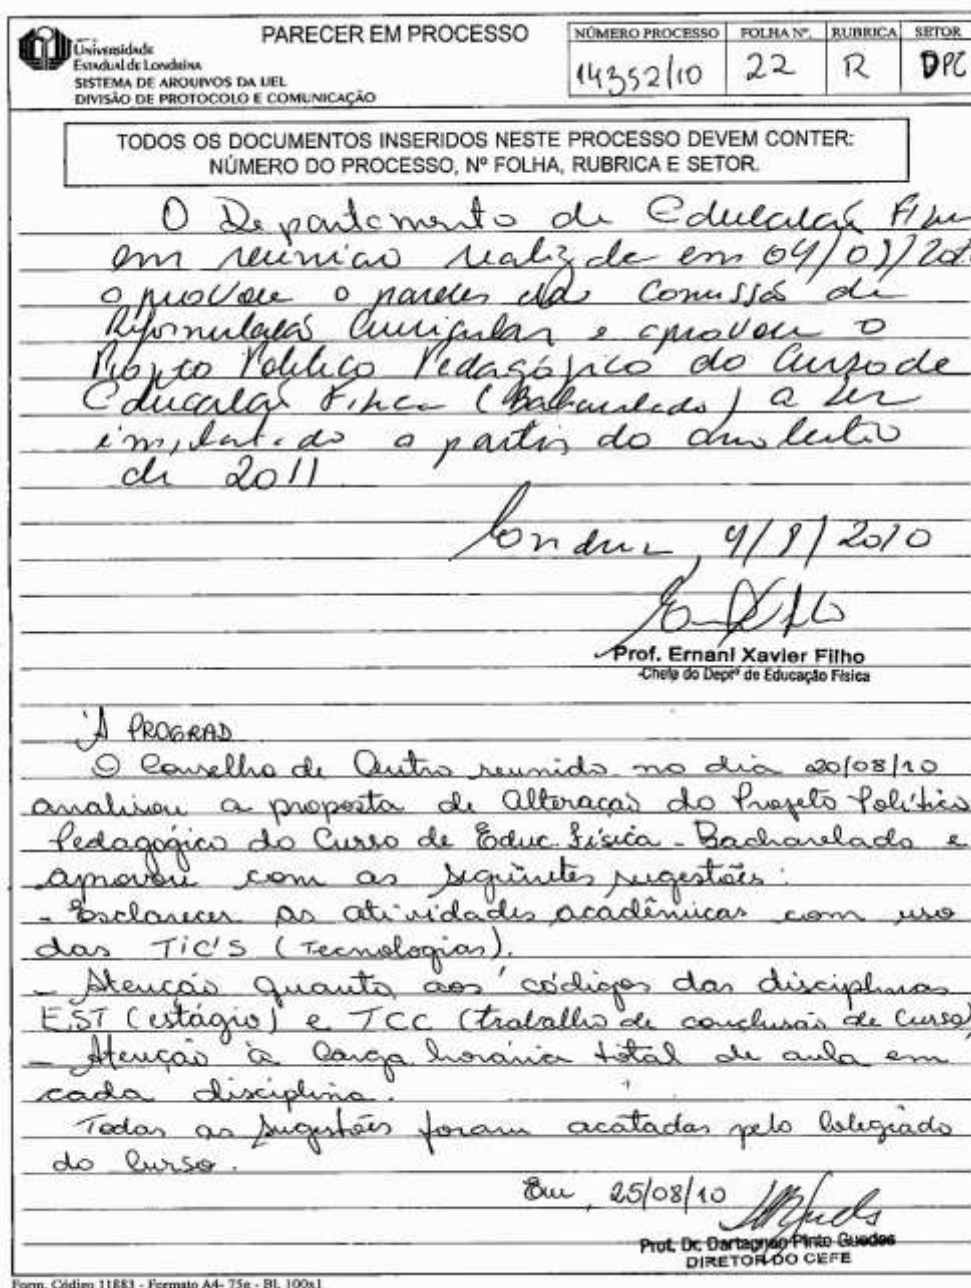 Universidade
Estadual de Londrina
SISTEMA DE ARQUIVOS DA UEL
DIVISÃO DE PROTOCOLO E COMUNICAÇÃO
PARECER EM PROCESSO
NÚMERO PROCESSO FOLHA Nº. RUBRICA SETOR
14352/10 22 R DPC
TODOS OS DOCUMENTOS INSERIDOS NESTE PROCESSO DEVEM CONTER:
NÚMERO DO PROCESSO, Nº FOLHA, RUBRICA E SETOR.
O Departamento de Educação
em reunião realizada em
aprovou o parecer da Comissão de
Reformulação Curricular e aprovou o
Projeto Político Pedagógico do Curso de
Educação Física (Bacharelado) a ser
implantado a partir do ano letivo
de 2011
Londrina, 2010
Prof. Ernani Xavier Filho
-Chefe do Deptº de Educação Física
À PROGRAD
O Conselho de Centro reunido no dia 20/08/10
analisou a proposta de Alteração do Projeto Político
Pedagógico do Curso de Educ. Física - Bacharelado e
aprovou com as seguintes sugestões:
- Esclarecer as atividades acadêmicas com uso
das TIC'S (Tecnologias).
- Atenção quanto aos códigos das disciplinas
EST (estágio) e TCC (trabalho de conclusão de Curso)
- Atenção à Carga horária total de aula em
cada disciplina.
Todas as sugestões foram acatadas pelo Colegiado
do Curso.
Em, 25/08/10
Prof. Dr. Dartagnan Pinto Guedes
DIRETOR DO CEFE
Form. Código 11883 - Formato A4- 75g - BL 100x1